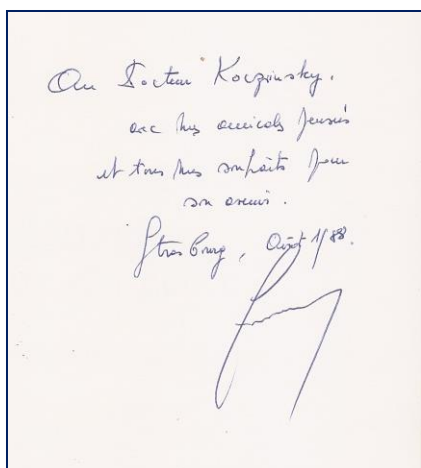 Au Docteur Koczinsky.
avec mes amicales pensées
et tous mes souhaits pour
son avenir.
Strasbourg, Août 1988.